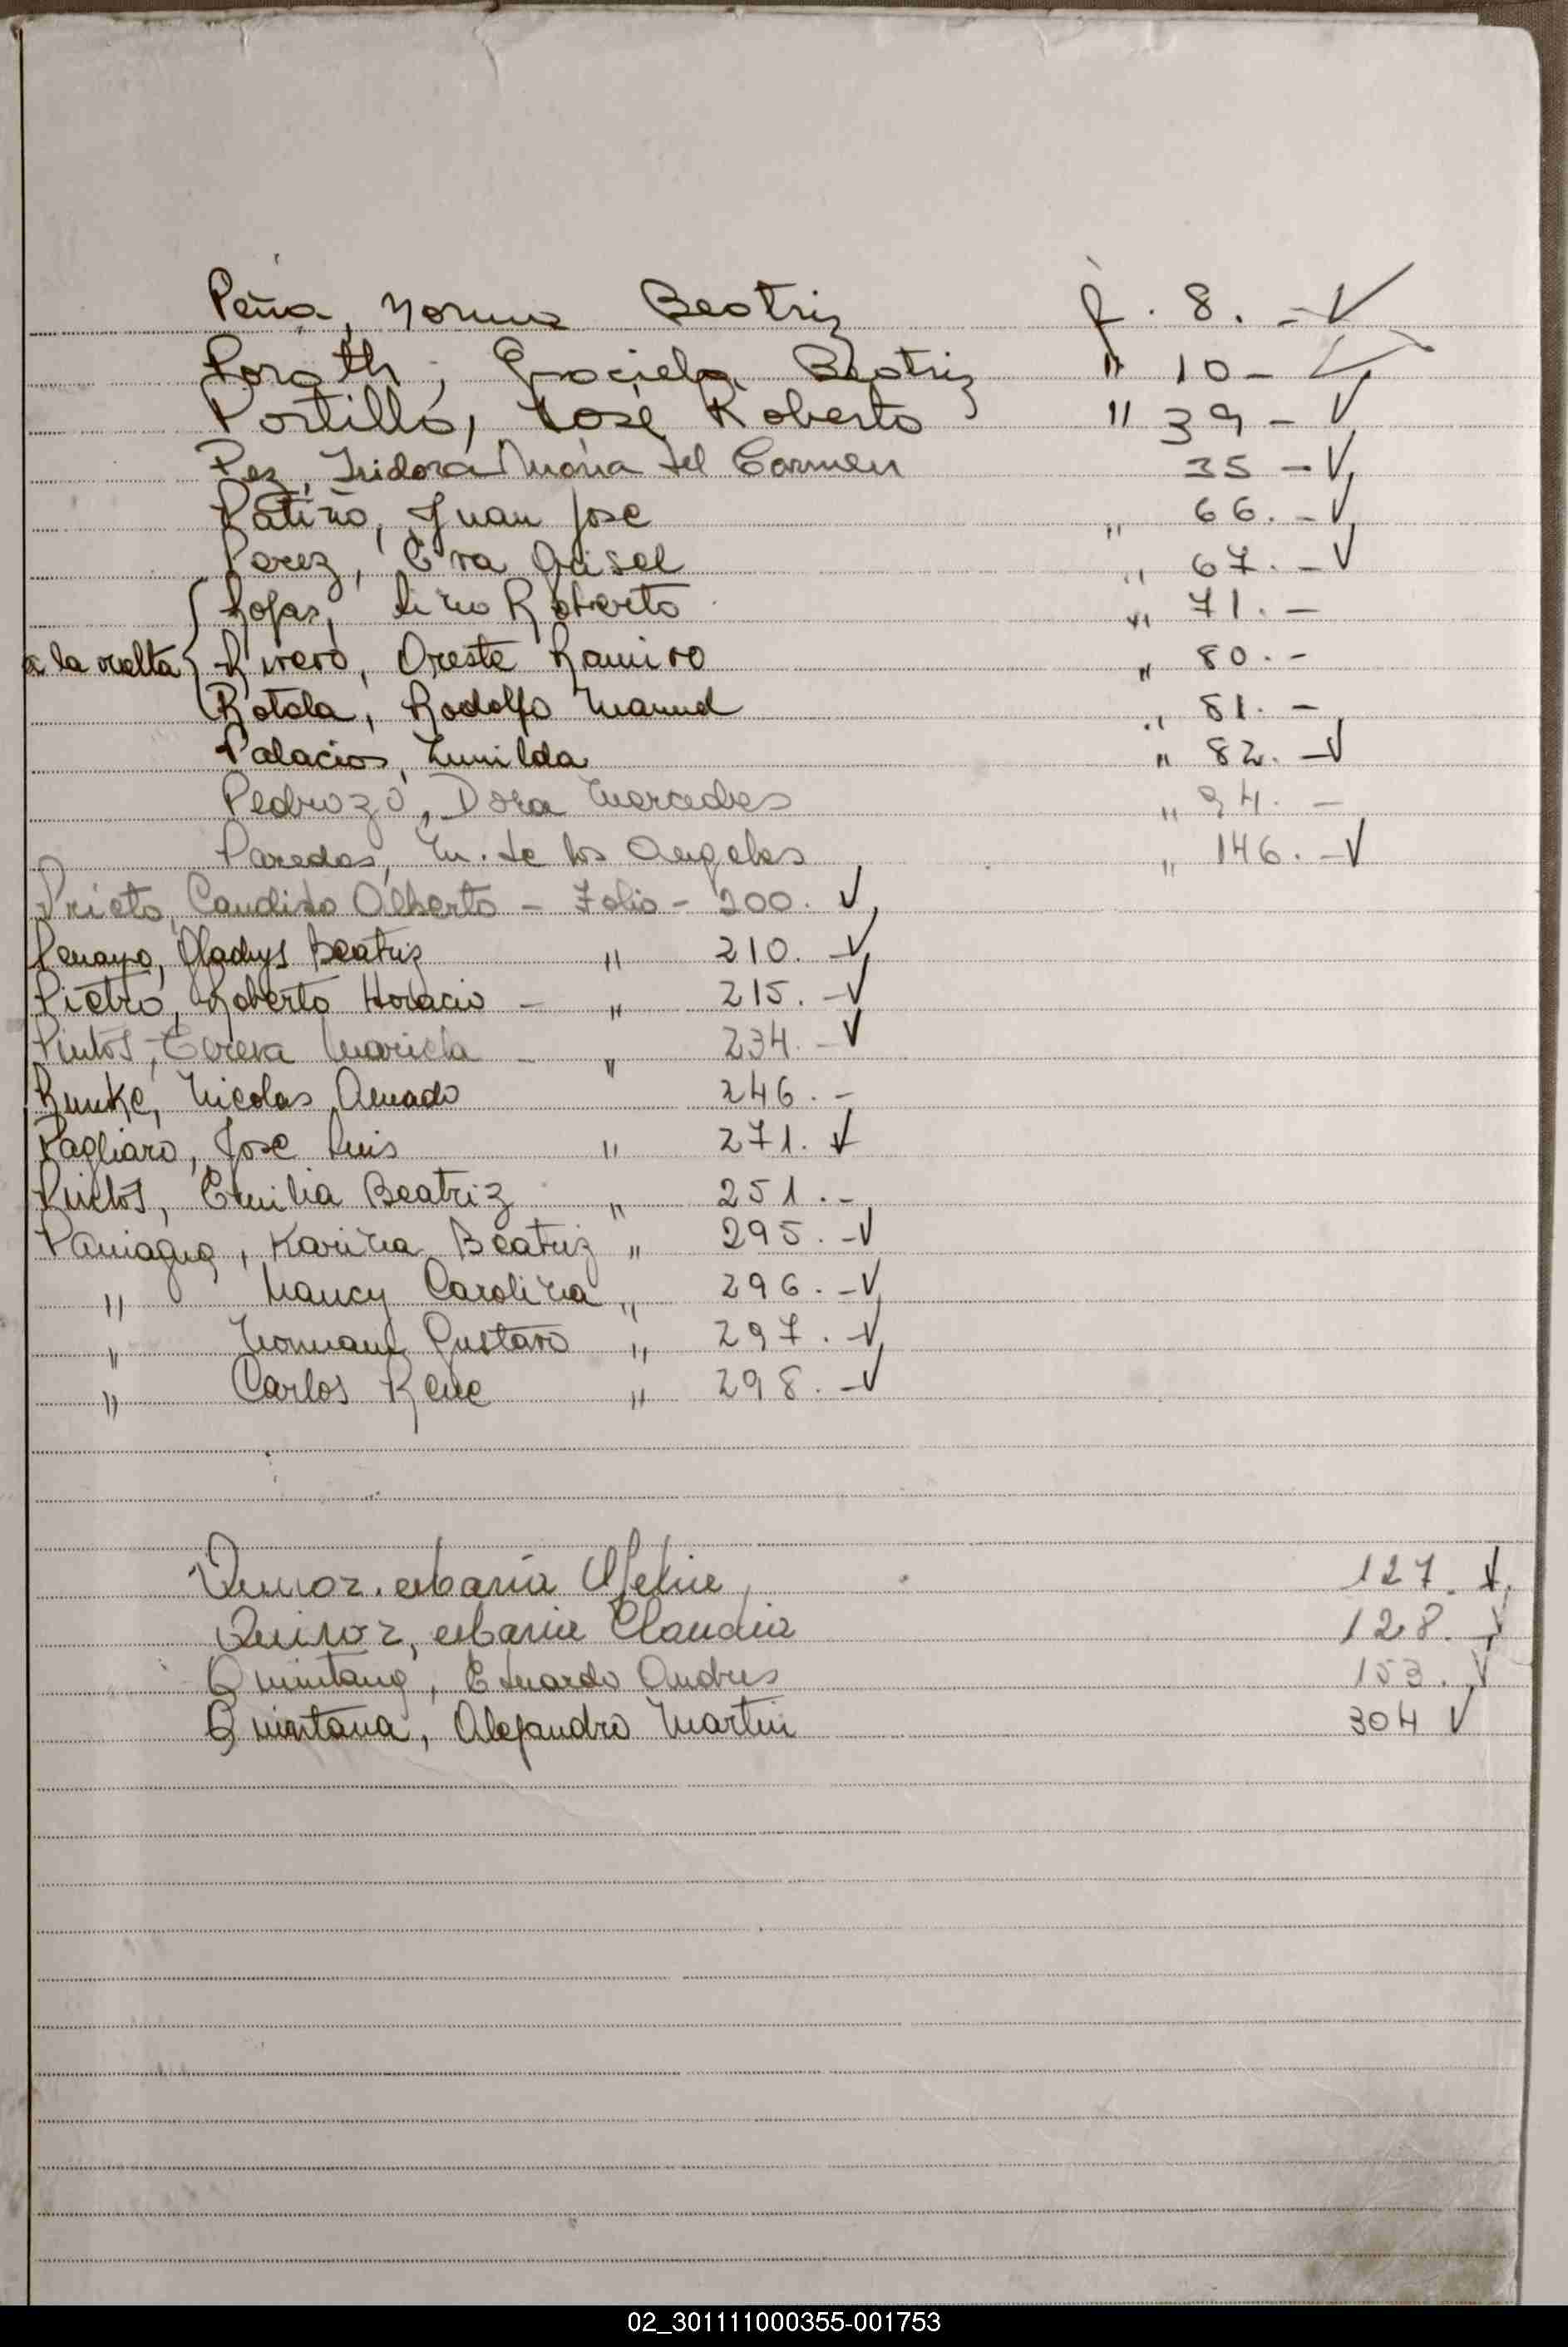 Peña, Norma Beatriz f. 8. - ✓
Porath, Graciela Beatriz " 10 - ✓
Portillo, José Roberto " 39 - ✓
Pez, Isidora María del Carmen 35 - ✓
Patiño, Juan José " 66. - ✓
Perez, Eva Grisel " 67. - ✓
Rojas, Lino Roberto " 71. -
a la vuelta { Rivero, Oreste Ramiro " 80. -
Rotela, Rodolfo Manuel " 81. -
Palacios, Zunilda " 82. - ✓
Pedrozo, Dora Mercedes " 94. -
Paredes, M. de los Angeles " 146. - ✓
Prieto, Candido Alberto - Folio - 200. ✓
Penayo, Gladys Beatriz " 210. - ✓
Pietro, Roberto Horacio - " 215. - ✓
Pintos, Teresa Mariela - " 234. - ✓
Runke, Nicolas Amado 246. -
Pagliaro, José Luis " 271. ✓
Pintos, Emilia Beatriz " 251. -
Paniagua, Karina Beatriz " 295. - ✓
" Nancy Carolina " 296. - ✓
" Gustavo " 297. - ✓
" Carlos Rene " 298. - ✓
María 127. ✓
Quiroz, María Claudia 128. ✓
Quintana, Eduardo Andres 153. ✓
Quintana, Alejandro Martin 304 ✓
02_301111000355-001753